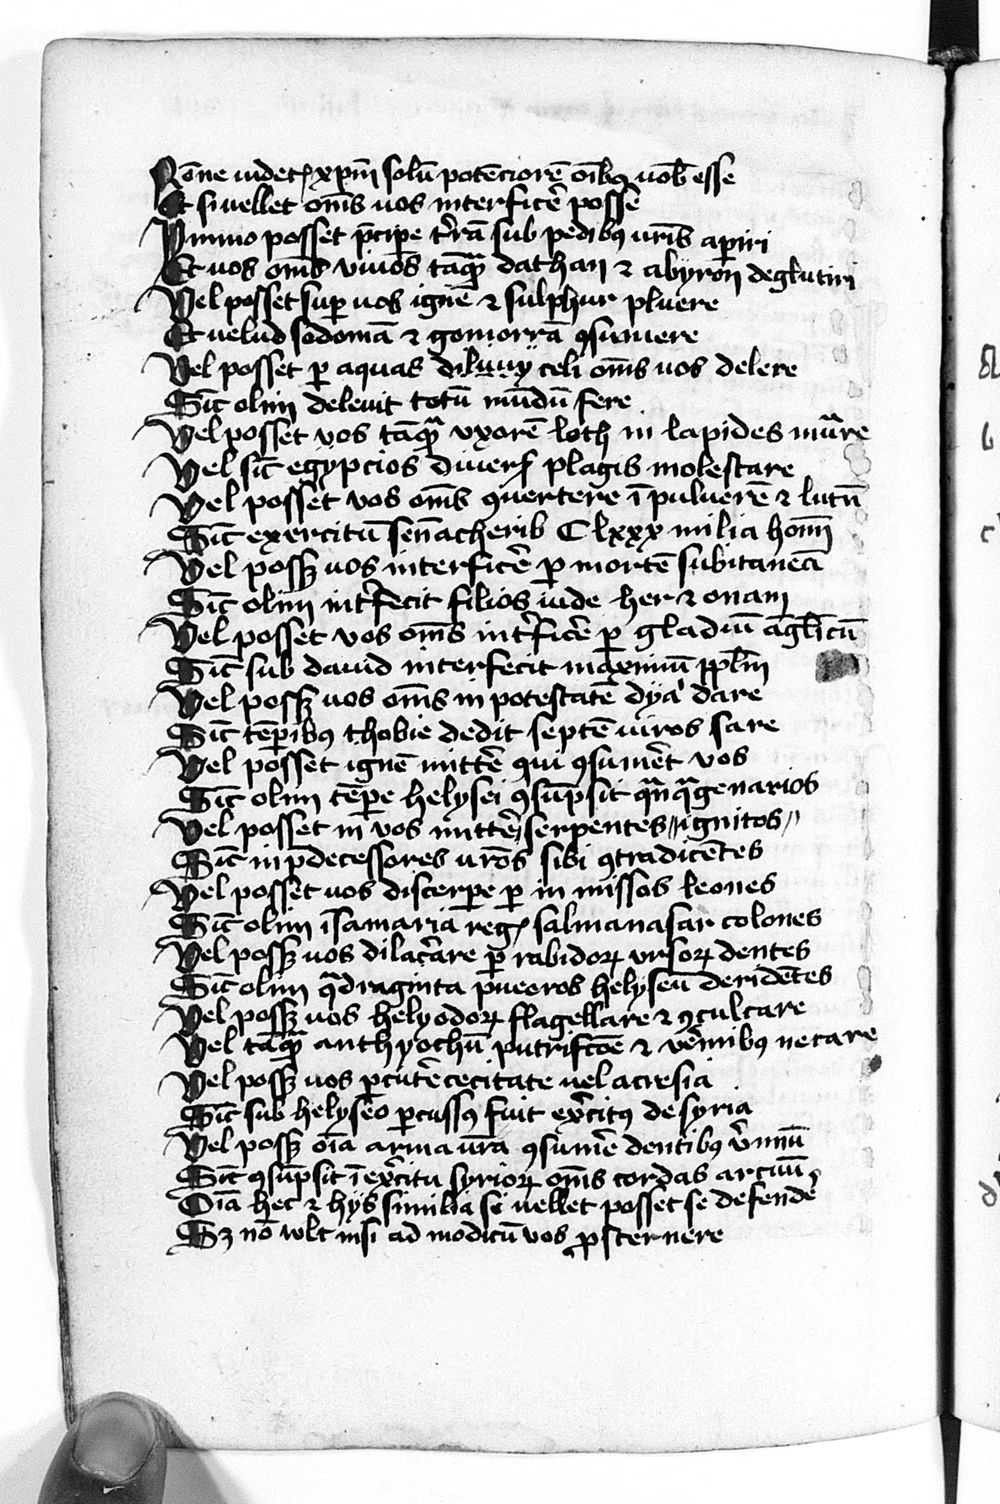 Nōne videt xp̄m solū potēciorē oībꝯ vob̄ esse
Et si vellet om̄s vos interficē posse
Ymmo posset p̄cipe t'rā sub pedibꝯ vr̄is apiri
Et vos om̄s vivos tāqᵃ dathan ⁊ abyron deglutiri
Vel posset sup vos ignē ⁊ sulphur pluere
Et velud sodomā ⁊ gomorrā ꝯsumere
Vel posset ꝑ aquas diluvij celi om̄s vos delere
Sic̄ olim delevit totū mūdū fere
Vel posset vos tāqᵃ vxorē loth in lapides mutᵃre
Vel sic̄ egypcios divers̄ plagis molestare
Vel posset vos om̄s ꝯvertere ī pulverē ⁊ lutū
Sic̄ exercitū sennacherib Clxxx milia hom̄
Vel possꝫ vos interficē ꝑ mortē subitaneā
Sic̄ olim int'fecit filios iude her ⁊ onam
Vel posset vos om̄s int'ficē ꝑ gladiū āgl̄icū
Sic̄ sub david interfecit maximū ppl̄m
Vel possꝫ vos om̄s in potestatē dya' dare
Sic̄ tēp̄ibꝯ thobie dedit septē viros sare
Vel posset ignē mittē qui ꝯsum̄et vos
Sic̄ olim tēp̄e helysei ꝯsūpsit qⁱnqᵃgenarios
Vel posset in vos mittē serpentes ignitos
Sic̄ in p̄decessores vr̄os sibi ꝯtradicētes
Vel posset vos discerpe ꝑ in missos leones
Sic̄ olim ī samaria reḡ salmanasar colones
Vel possꝫ vos dilac̄are ꝑ rabidoꝝ vrsoꝝ dentes
Sic̄ olim qᵃdraginta pueros helyseū deridētes
Vel possꝫ vos helyodoꝝ flagellare ⁊ ꝯculcare
Vel tāqᵃ anthyochū putrifc̄ōe ⁊ v'mibꝯ necare
Vel possꝫ vos ꝑcutē cecitate vel acrisia
Sic̄ sub helyseo ꝑcussꝯ fuit ex'citꝯ de syria
Vel possꝫ oīa arma vr̄a ꝯsumē dentibꝯ v'miū
Sic̄ ꝯsūpsit ī ex'citu syrioꝝ om̄s cordas arcuū
Oīa hec ⁊ hijs similia si vellet posset se defendē
Sꝫ nō wlt nisi ad modicū vos ꝓsternere